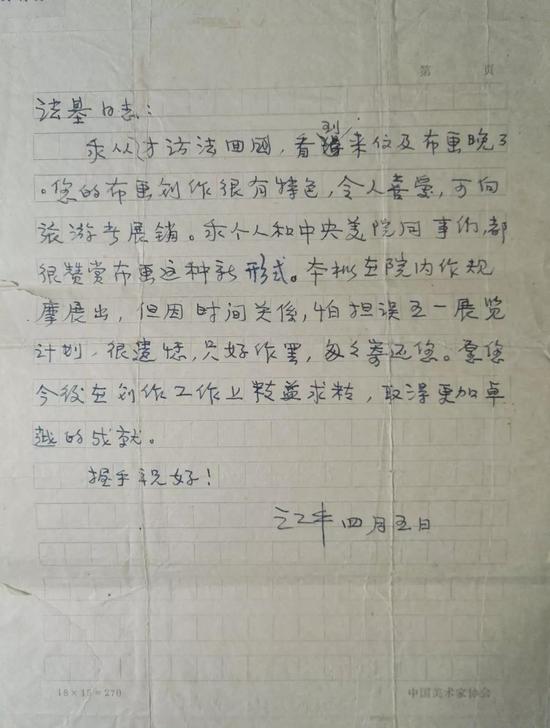 第　　页
法基同志：
我从才访法回国，看到来信及布画晚了
。您的布画创作很有特色，令人喜爱，可向
旅游者展销。我个人和中央美院同事们，都
很赞赏布画这种新形式。本拟在院内作观
摩展出，但因时间关係，怕担误五一展览
计划，很遗憾，只好作罢，匆匆寄还您。愿您
今后在创作工作上精益求精，取得更加卓
越的成就。
握手祝好！
江丰 四月五日
18×15=270
中国美术家协会